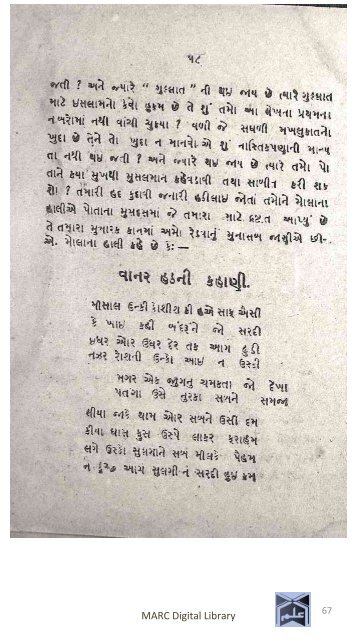 ૫૮
જતી ? અને જ્યારે " ગુફ્લાત " ની થઈ જાય છે ત્યારે ગુફ્લાત
માટે ઇસલામનો કેવો હુકમ છે તે શું તમો આ લેખના પ્રથમના
નંબરોમાં નથી વાંચી ચુક્યા ? વળી જે સઘળી મખલુકાતનો
ખુદા છે તેને તો ખુદા ન માનવો એ શું નાસ્તિકપણાની માન્ય
તા નથી થઈ જતી ? અને જ્યારે થઈ જાય છે ત્યારે તમો પો
તાને કયા મુખથી મુસલમાન કહેવડાવી તથા સાબીત કરી શક
શો ? તમારી હદ કુદાવી જનારી હઠીલાઈ જોતાં તમોને મોલાના
હાલીએ પોતાના મુસદ્દસમાં જે તમારા માટે દ્રષ્ટાંત આપ્યું છે
તે તમારા મુબારક કાનમાં અમો રેડવાનું મુનાસબ જાણીએ છી-
એ. મોલાના હાલી કહે છે કેઃ—
વાનર હઠની કહાણી.
મીસાલ ઉન્કી કોશીશ કી હએ સાફ ઐસી
કે ખાઇ કહીં બંદરૂંને જો સરદી
ઇધર ઓર ઉધર દેર તક આગ ઢુંડી
નઝર રોશની ઉન્કો આઇ ન ઉસ્કી
મગર એક જુગનુ ચમકતા જો દેખા
પતંગા ઉસે નુરકા સબને સમજા
લીયા જાકે થામ ઓર સબને ઉસી દમ
કીયા ઘાસ ફુસ ઉસ્પે લાકર ફરાહમ
લગે ઉસ્કો સુલગાને સબ મીલકે પેહમ
ન કુછ આગ સુલગી ન સરદી હુઇ કમ
MARC Digital Library
علم
67